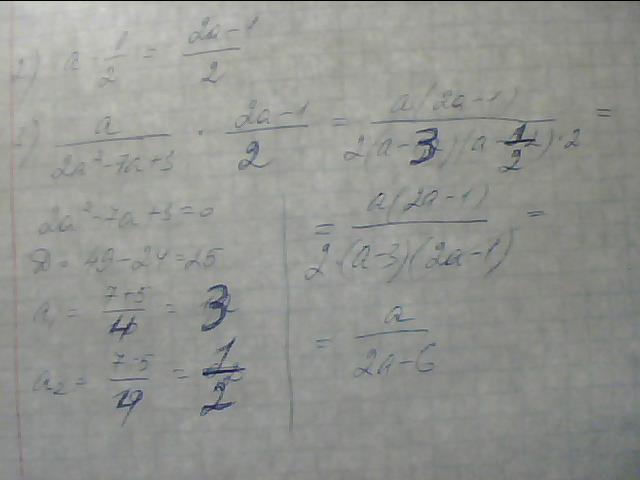 2) a - 1/2 = (2a-1)/2
3) a/(2a²-7a+3) · (2a-1)/2 = a(2a-1)/(2(a-3)(a-1/2)·2) =
2a²-7a+3=0
D = 49-24=25
a₁ = (7+5)/4 = 3
a₂ = (7-5)/4 = 1/2
= a(2a-1)/(2·(a-3)(2a-1)) =
= a/(2a-6)